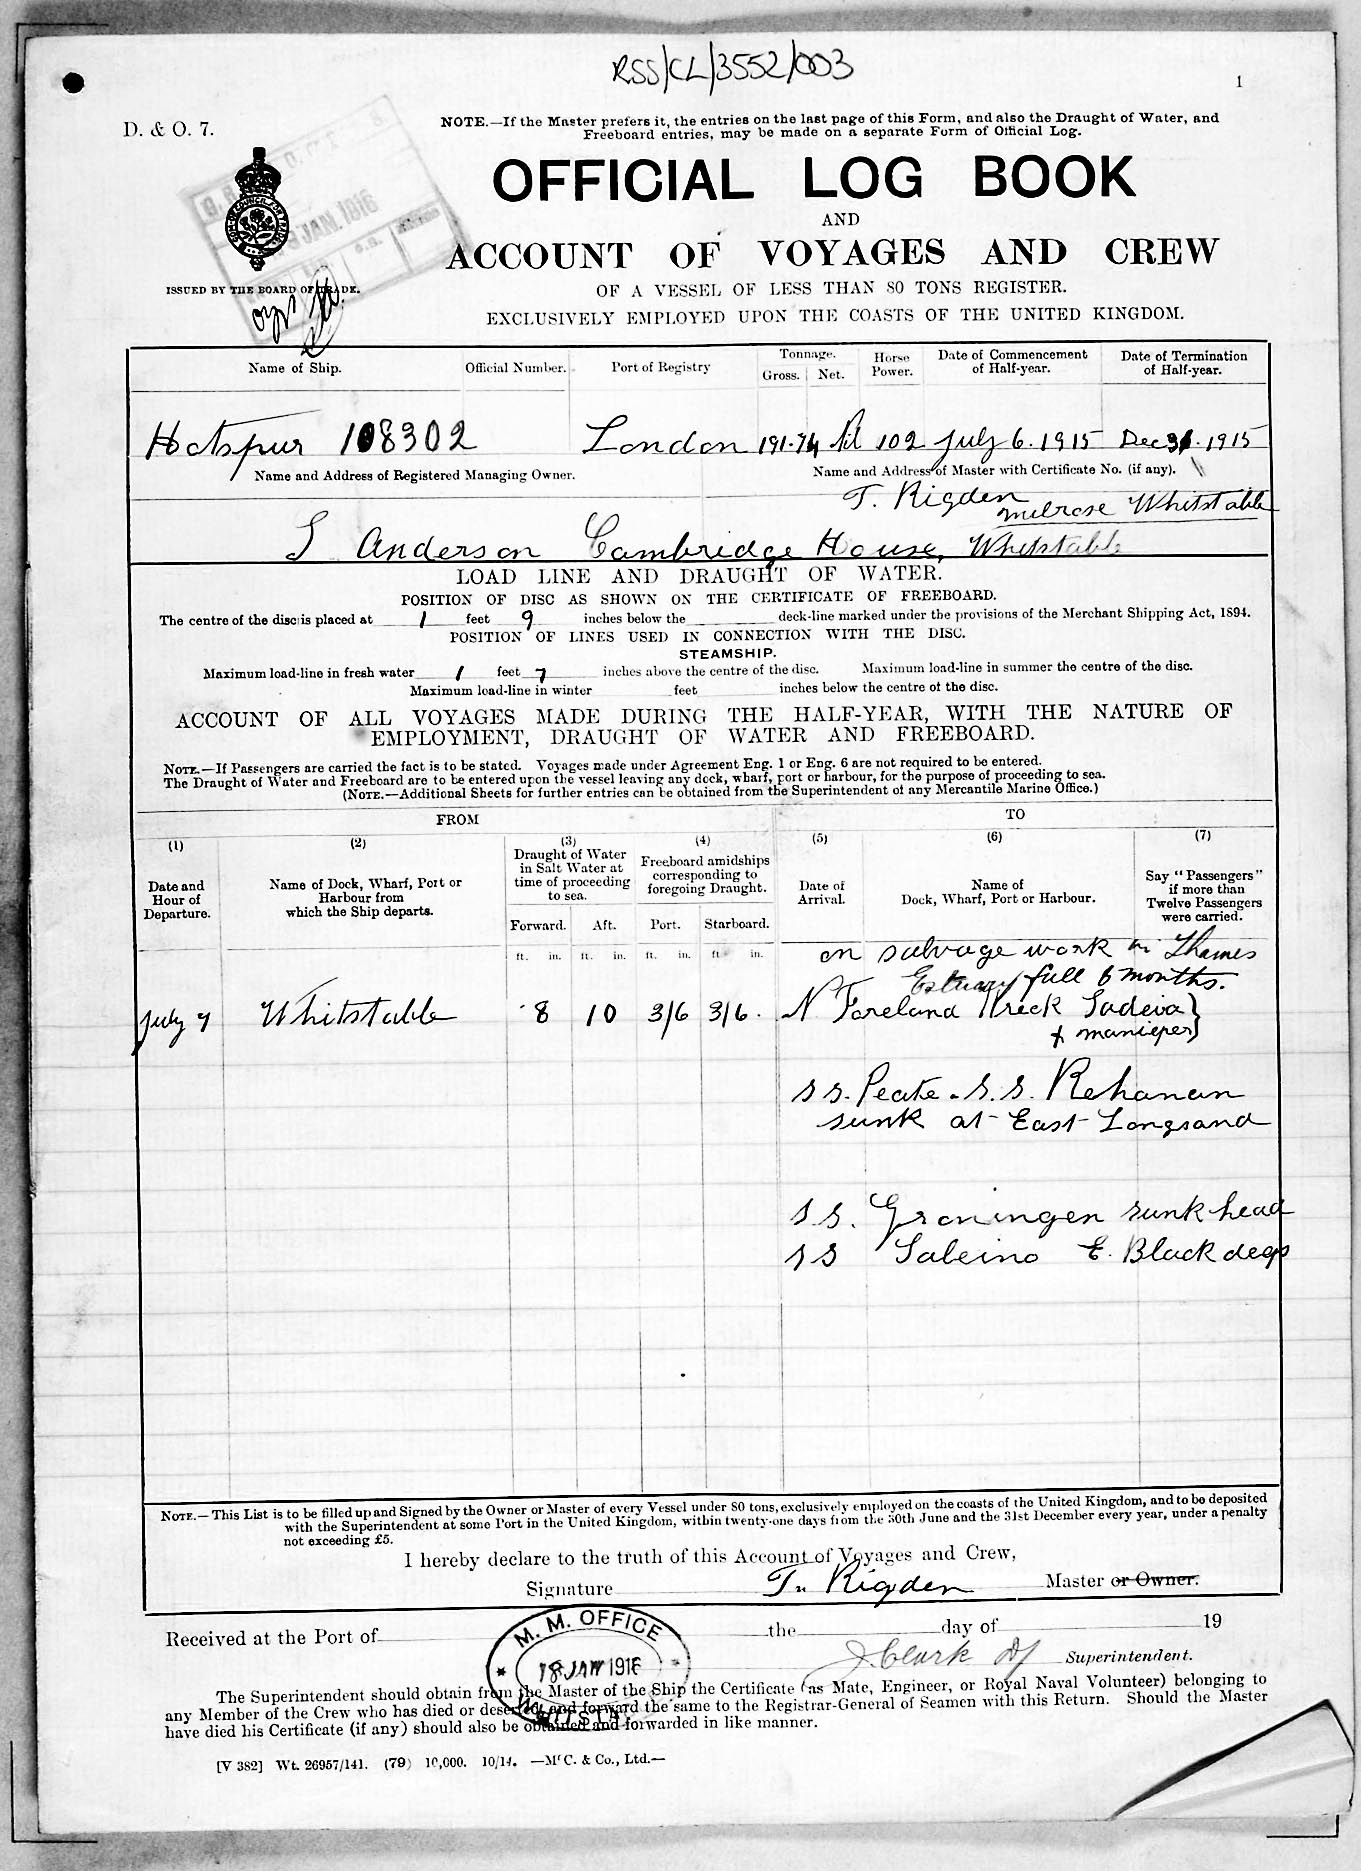 RSS/CL/3552/003
1
D. & O. 7.
NOTE.—If the Master prefers it, the entries on the last page of this Form, and also the Draught of Water, and
Freeboard entries, may be made on a separate Form of Official Log.
OFFICIAL LOG BOOK
AND
ACCOUNT OF VOYAGES AND CREW
OF A VESSEL OF LESS THAN 80 TONS REGISTER.
EXCLUSIVELY EMPLOYED UPON THE COASTS OF THE UNITED KINGDOM.
JAN. 1916
ISSUED BY THE BOARD OF TRADE.
Name of Ship. Official Number. Port of Registry Tonnage. Gross. Net. Horse Power. Date of Commencement of Half-year. Date of Termination of Half-year.
Hotspur 108302 London 191.74 Nil 102 July 6. 1915 Dec 31. 1915
Name and Address of Registered Managing Owner. Name and Address of Master with Certificate No. (if any).
T. Rigden
Melrose Whitstable
Anderson Cambridge House, Whitstable
LOAD LINE AND DRAUGHT OF WATER.
POSITION OF DISC AS SHOWN ON THE CERTIFICATE OF FREEBOARD.
The centre of the disc is placed at 1 feet 9 inches below the deck-line marked under the provisions of the Merchant Shipping Act, 1894.
POSITION OF LINES USED IN CONNECTION WITH THE DISC.
STEAMSHIP.
Maximum load-line in fresh water 1 feet 7 inches above the centre of the disc. Maximum load-line in summer the centre of the disc.
Maximum load-line in winter feet inches below the centre of the disc.
ACCOUNT OF ALL VOYAGES MADE DURING THE HALF-YEAR, WITH THE NATURE OF
EMPLOYMENT, DRAUGHT OF WATER AND FREEBOARD.
NOTE.—If Passengers are carried the fact is to be stated. Voyages made under Agreement Eng. 1 or Eng. 6 are not required to be entered.
The Draught of Water and Freeboard are to be entered upon the vessel leaving any dock, wharf, port or harbour, for the purpose of proceeding to sea.
(NOTE.—Additional Sheets for further entries can be obtained from the Superintendent of any Mercantile Marine Office.)
FROM TO
(1) (2) (3) (4) (5) (6) (7)
Date and Hour of Departure.
Name of Dock, Wharf, Port or Harbour from which the Ship departs.
Draught of Water in Salt Water at time of proceeding to sea.
Freeboard amidships corresponding to foregoing Draught.
Date of Arrival.
Name of Dock, Wharf, Port or Harbour.
Say "Passengers" if more than Twelve Passengers were carried.
Forward. Aft. Port. Starboard.
ft. in. ft. in. ft. in. ft. in.
on salvage work in Thames
Estuary full 6 months.
July 7 Whitstable 8 10 3/6 3/6. N Foreland Wreck
&
s s. Peate. S. S. Rehanan
sunk at East Longsand
s s. Groningen sunk head
s s E. Black deeps
NOTE.—This List is to be filled up and Signed by the Owner or Master of every Vessel under 80 tons, exclusively employed on the coasts of the United Kingdom, and to be deposited
with the Superintendent at some Port in the United Kingdom, within twenty-one days from the 30th June and the 31st December every year, under a penalty
not exceeding £5.
I hereby declare to the truth of this Account of Voyages and Crew,
Signature T. Rigden Master or Owner.
Received at the Port of the day of 19
M. M. OFFICE
18 JAN 1916
J. Clark Superintendent.
The Superintendent should obtain from the Master of the Ship the Certificate (as Mate, Engineer, or Royal Naval Volunteer) belonging to
any Member of the Crew who has died or deserted, and forward the same to the Registrar-General of Seamen with this Return. Should the Master
have died his Certificate (if any) should also be obtained and forwarded in like manner.
[V 382] Wt. 26957/141. (79) 10,000. 10/14. —McC. & Co., Ltd.—